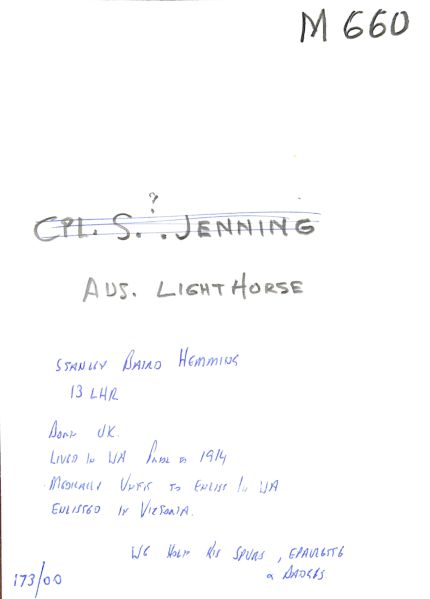 M 660
?
CPL. S. . JENNING
AUS. LIGHT HORSE
STANLEY BAIRD HEMMING
13 LHR
BORN UK.
LIVED IN WA PRIOR TO 1914
MEDICALLY UNFIT TO ENLIST IN WA
ENLISTED IN VICTORIA.
WE HOLD HIS SPURS, EPAULETTE
& BADGES
173/00